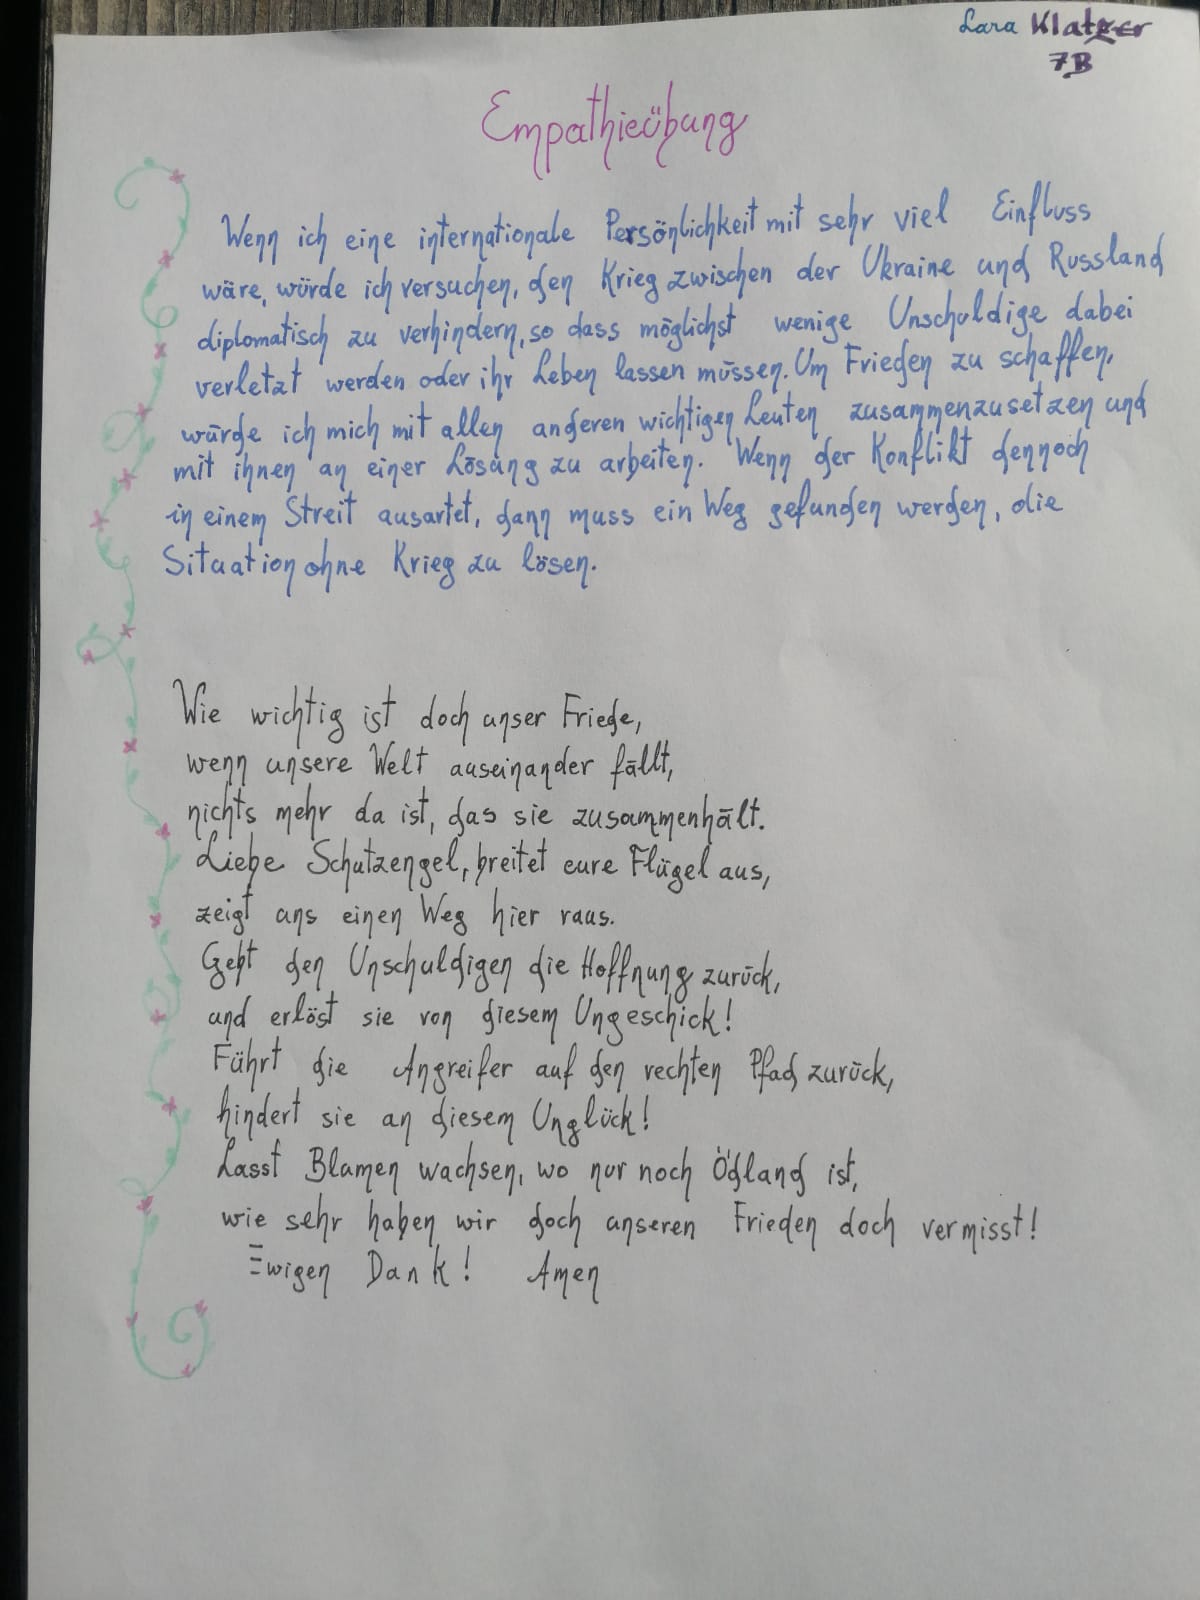 Lara Klatzer
7B
Empathieübung
Wenn ich eine internationale Persönlichkeit mit sehr viel Einfluss
wäre, würde ich versuchen, den Krieg zwischen der Ukraine und Russland
diplomatisch zu verhindern, so dass möglichst wenige Unschuldige dabei
verletzt werden oder ihr Leben lassen müssen. Um Frieden zu schaffen,
würde ich mich mit allen anderen wichtigen Leuten zusammenzusetzen und
mit ihnen an einer Lösung zu arbeiten. Wenn der Konflikt dennoch
in einem Streit ausartet, dann muss ein Weg gefunden werden, die
Situation ohne Krieg zu lösen.
Wie wichtig ist doch unser Friede,
wenn unsere Welt auseinander fällt,
nichts mehr da ist, das sie zusammenhält.
Liebe Schutzengel, breitet eure Flügel aus,
zeigt uns einen Weg hier raus.
Gebt den Unschuldigen die Hoffnung zurück,
und erlöst sie von diesem Ungeschick!
Führt die Angreifer auf den rechten Pfad zurück,
hindert sie an diesem Unglück!
Lasst Blumen wachsen, wo nur noch Ödland ist,
wie sehr haben wir doch unseren Frieden doch vermisst!
Ewigen Dank! Amen